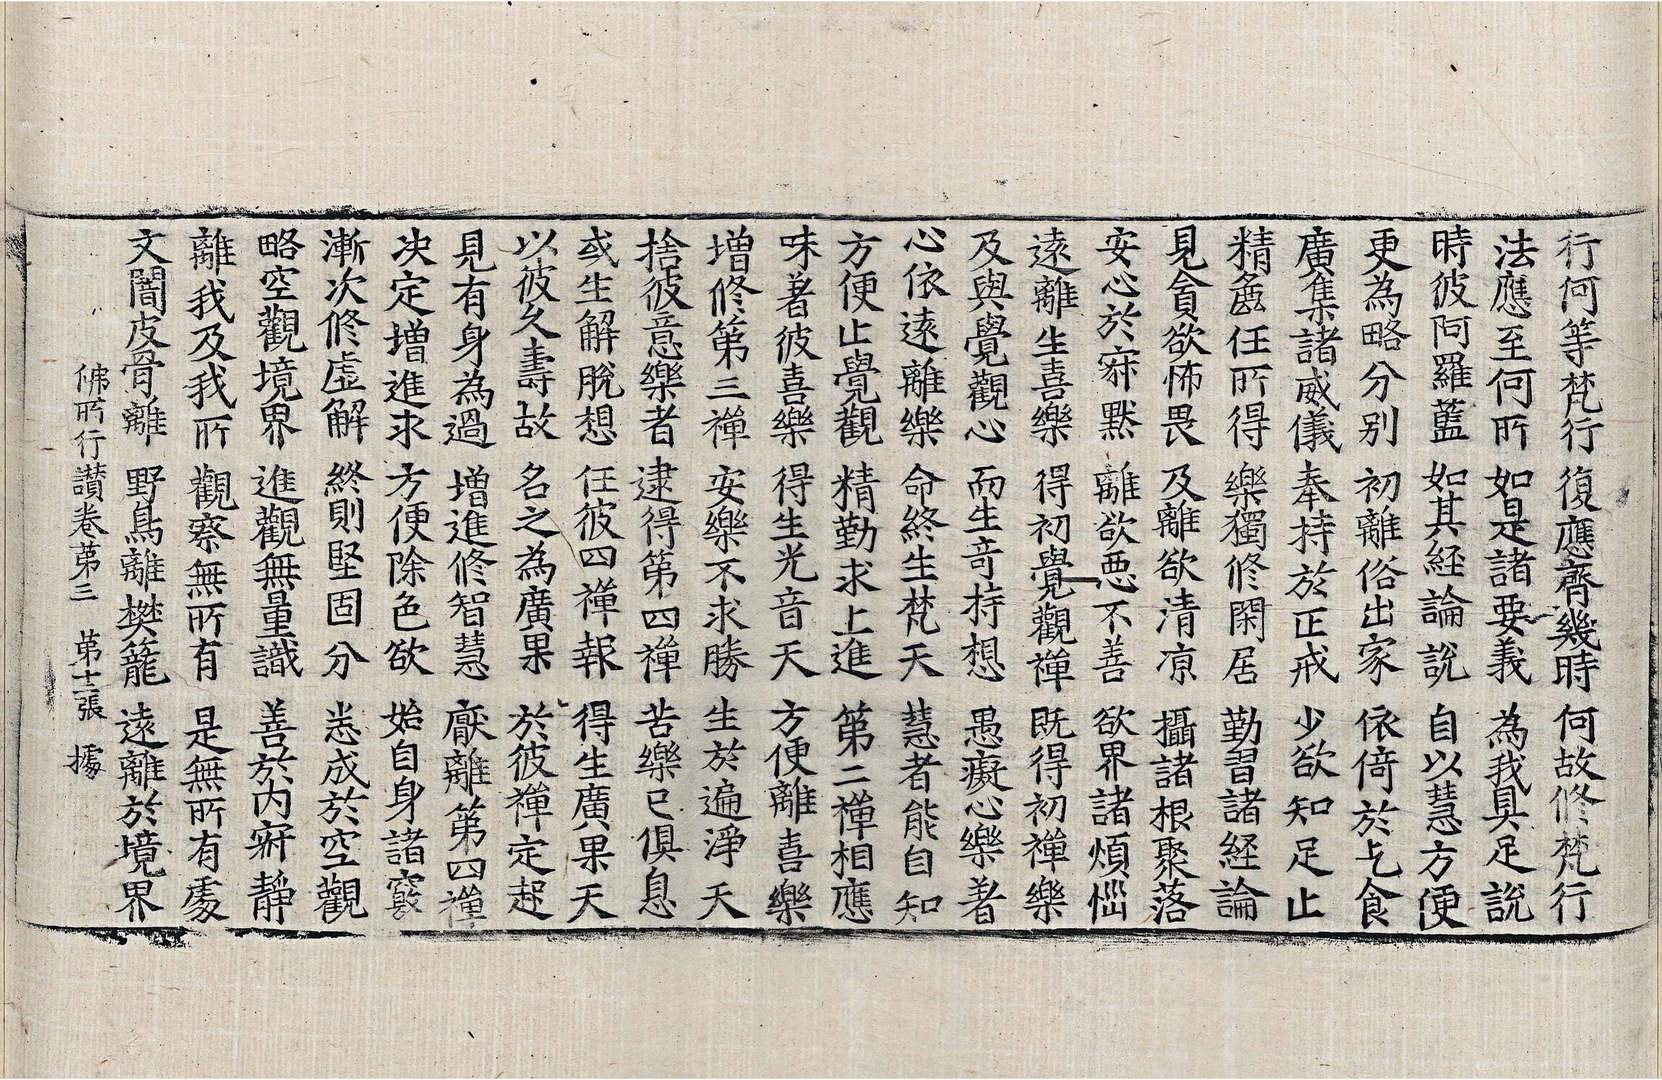 行何等梵行 復應齊幾時 何故修梵行
法應至何所 如是諸要義 為我具足說
時彼阿羅藍 如其経論說 自以慧方便
更為略分別 初離俗出家 依倚於乞食
廣集諸威儀 奉持於正戒 少欲知足止
精麁任所得 樂獨修閑居 勤習諸経論
見貪欲怖畏 及離欲清涼 攝諸根聚落
安心於寂黙 離欲悪不善 欲界諸煩惱
遠離生喜樂 得初覺觀禪 既得初禪樂
及與覺觀心 而生竒持想 愚癡心樂著
心依遠離樂 命終生梵天 慧者能自知
方便止覺觀 精勤求上進 第二禪相應
味著彼喜樂 得生光音天 方便離喜樂
増修第三禪 安樂不求勝 生於遍淨天
捨彼意樂者 逮得第四禪 苦樂已俱息
或生解脫想 任彼四禪報 得生廣果天
以彼久壽故 名之為廣果 於彼禪定起
見有身為過 増進修智慧 厭離第四禪
决定増進求 方便除色欲 始自身諸竅
漸次修虛解 終則堅固分 悉成於空觀
略空觀境界 進觀無量識 善於內寂靜
離我及我所 觀察無所有 是無所有處
文闍皮骨離 野鳥離樊籠 遠離於境界
佛所行讃卷第三 第十二張 據